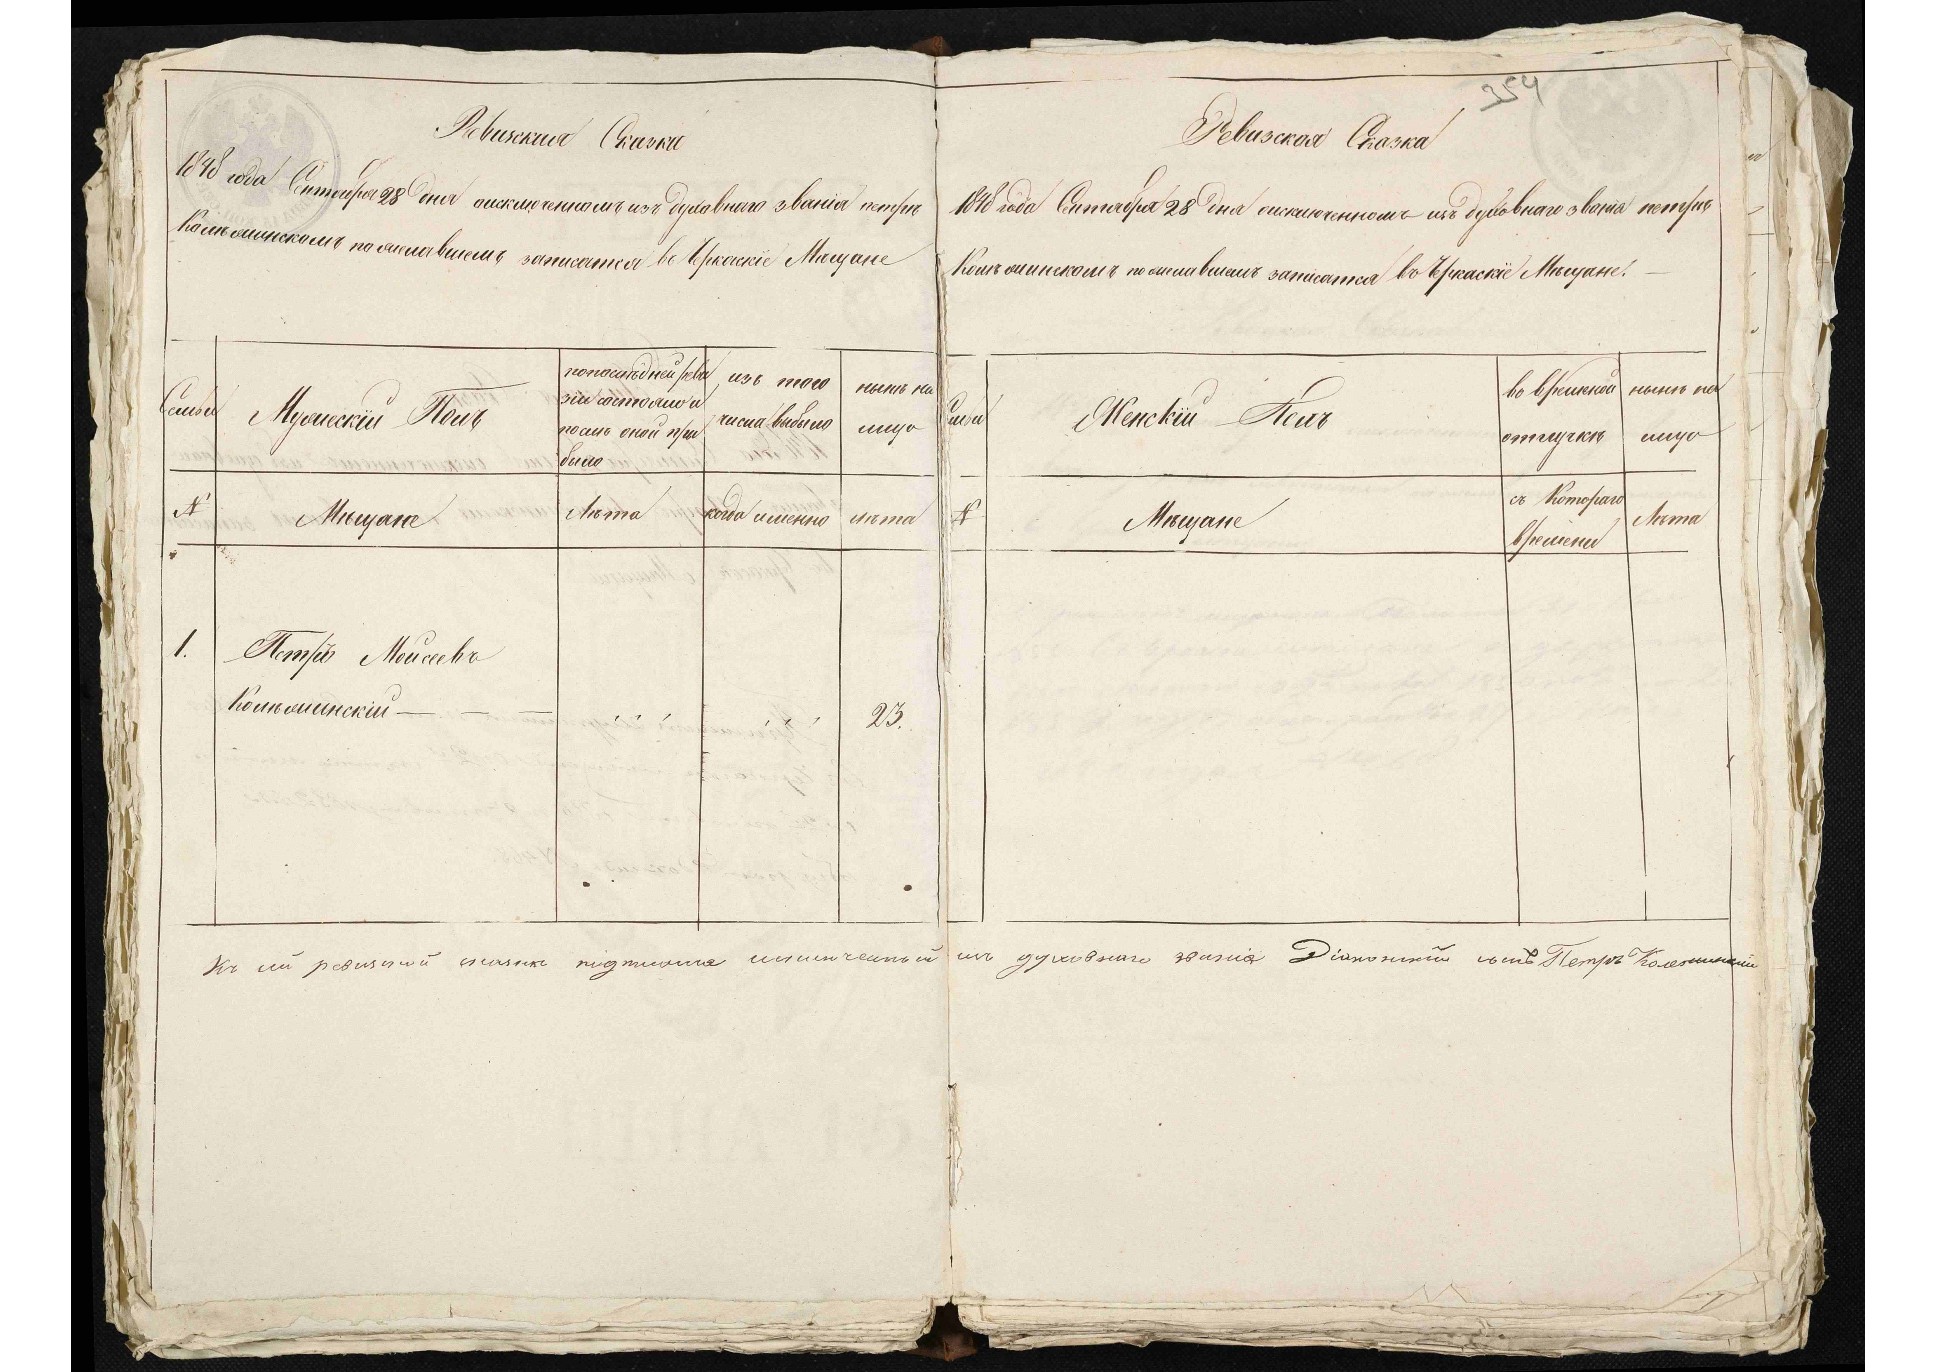 Ревизская Сказка
1848 года Сентября 28 дня о исключенномъ изъ духовнаго званія петрѣ
Колѣминскомъ пожелавшемъ записатся въ Черкаскіе Мѣщане
Семьи
Мужескій Полъ
по последней реви
зіи состояло и
послѣ оной при
было
изъ того
числа выбыло
нынѣ на
лицо
№
Мѣщане
Лѣта
когда именно
лѣта
1.
Петръ Моисеевъ
Колѣминскій — — —
23.
354
Ревизская Сказка
1848 года Сентября 28 дня о исключенномъ изъ духовнаго званія петрѣ
Колѣминскомъ пожелавшемъ записатся въ Черкаскіе Мѣщане. —
Семьи
Женскій Полъ
во временной
отлучкѣ
нынѣ на
лицо
№
Мѣщане
съ Котораго
времени
Лѣта
Къ сей ревизской сказкѣ подписался исключенный изъ духовнаго званія Діаконскій сынъ Петръ Колеминскій